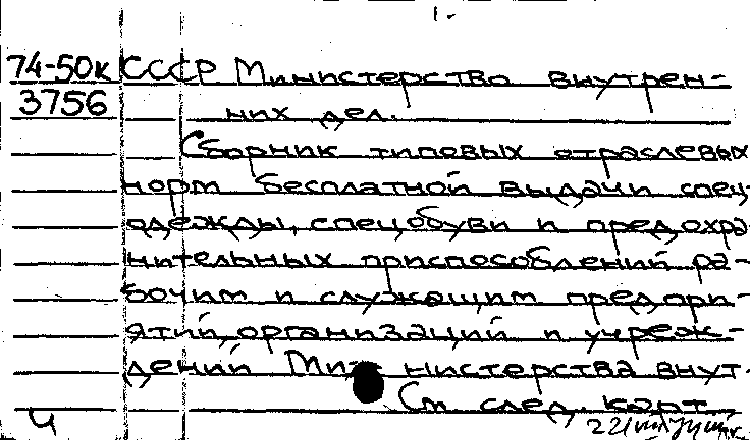 1.
74-50к СССР Министерство внутрен-
3756 них дел.
Сборник типовых отраслевых
норм бесплатной выдачи спец-
одежды, спецобуви и предохра-
нительных приспособлений ра-
бочим и служащим предпри-
ятий, организаций и учреж-
дений Министерства внут-
См. след. карт.
Ч